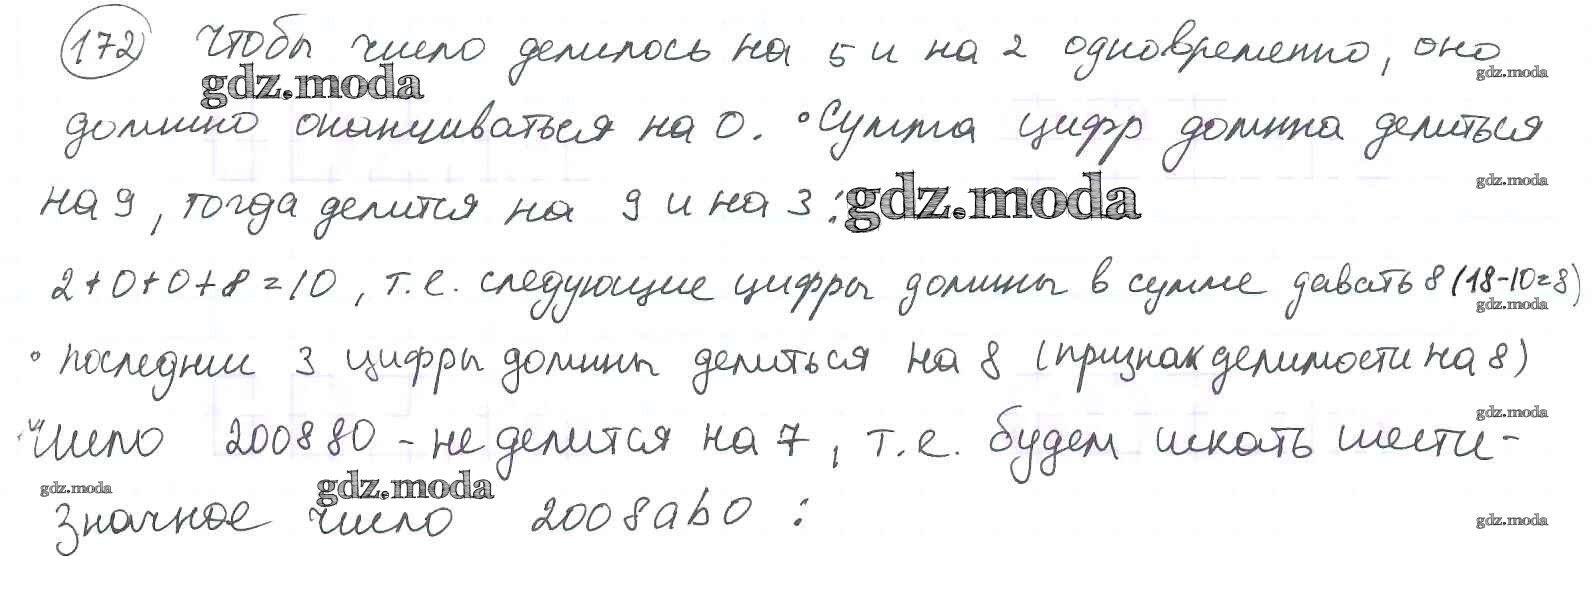 172 Чтобы число делилось на 5 и на 2 одновременно, оно
gdz.moda gdz.moda
должно оканчиваться на 0. • Сумма цифр должна делиться
gdz.moda
на 9, тогда делится на 9 и на 3: gdz.moda
2+0+0+8=10, т.е. следующие цифры должны в сумме давать 8 (18-10=8)
gdz.moda
• последнии 3 цифры должны делиться на 8 (признак делимости на 8)
gdz.moda
Число 200880 - не делится на 7, т.е. будем искать шести-
gdz.moda gdz.moda
значное число 2008ab0 :
gdz.moda